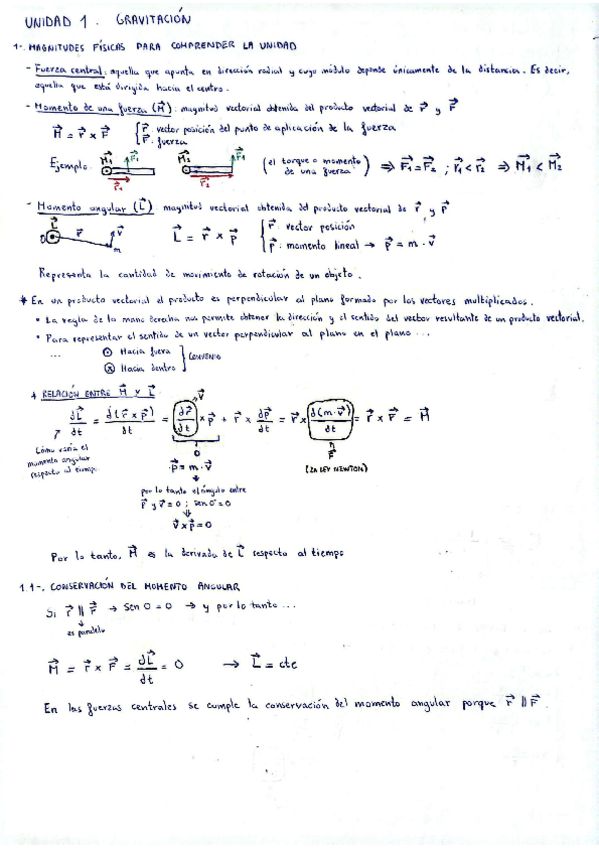 UNIDAD 1. GRAVITACIÓN
1-. MAGNITUDES FÍSICAS PARA COMPRENDER LA UNIDAD
- Fuerza central: aquella que apunta en dirección radial y cuyo módulo depende únicamente de la distancia. Es decir,
aquella que está dirigida hacia el centro.
- Momento de una fuerza (M⃗): magnitud vectorial obtenida del producto vectorial de r⃗ y F⃗
M⃗ = r⃗ x F⃗ { r⃗: vector posición del punto de aplicación de la fuerza
F⃗: fuerza
Ejemplo: M⃗1 F⃗1 r⃗1 M⃗2 F⃗2 r⃗2 (el torque o momento de una fuerza) ⇒ F⃗1 = F⃗2 ; r⃗1 < r⃗2 ⇒ M⃗1 < M⃗2
- Momento angular (L⃗): magnitud vectorial obtenida del producto vectorial de r⃗ y p⃗
L⃗ r⃗ v⃗ m L⃗ = r⃗ x p⃗ { r⃗: vector posición
p⃗: momento lineal → p⃗ = m · v⃗
Representa la cantidad de movimiento de rotación de un objeto.
* En un producto vectorial el producto es perpendicular al plano formado por los vectores multiplicados.
• La regla de la mano derecha nos permite obtener la dirección y el sentido del vector resultante de un producto vectorial.
• Para representar el sentido de un vector perpendicular al plano en el plano ...
... ⊙ Hacia fuera
⊗ Hacia dentro } CONVENIO
* RELACIÓN ENTRE M⃗ Y L⃗
dL⃗/dt = d(r⃗ x p⃗)/dt = dr⃗/dt x p⃗ + r⃗ x dp⃗/dt = r⃗ x d(m·v⃗)/dt = r⃗ x F⃗ = M⃗
v⃗
Cómo varía el
momento angular
respecto al tiempo
0
p⃗ = m · v⃗
F⃗
(2A LEY NEWTON)
por lo tanto el ángulo entre
p⃗ y v⃗ = 0 ; sen 0 = 0
v⃗ x p⃗ = 0
Por lo tanto, M⃗ es la derivada de L⃗ respecto al tiempo
1.1-. CONSERVACIÓN DEL MOMENTO ANGULAR
Si r⃗ ∥ F⃗ → sen 0 = 0 → y por lo tanto ...
es paralelo
M⃗ = r⃗ x F⃗ = dL⃗/dt = 0 → L⃗ = cte
En las fuerzas centrales se cumple la conservación del momento angular porque r⃗ ∥ F⃗.